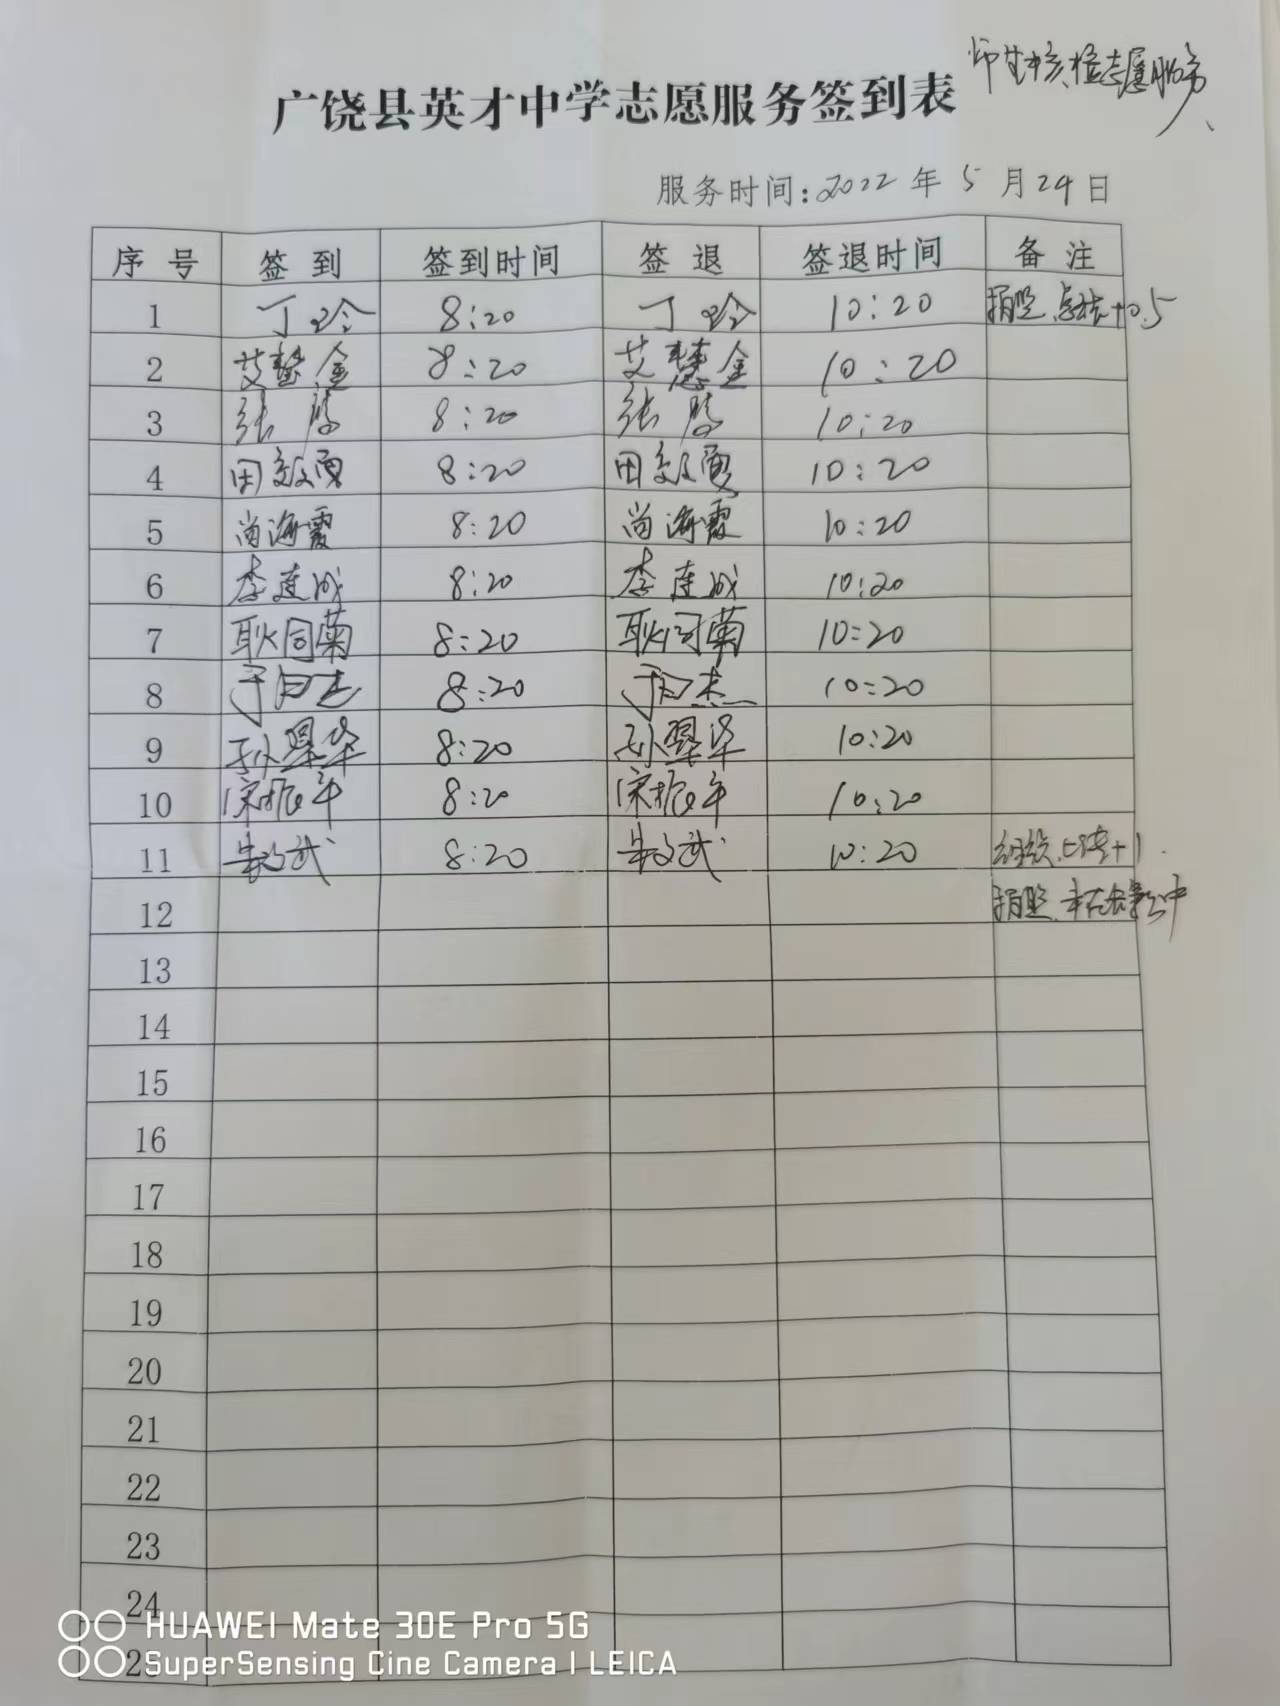 师生核检志愿服务
广饶县英才中学志愿服务签到表
服务时间:2022年5月29日
序号 签到 签到时间 签退 签退时间 备注
1 丁玲 8:20 丁玲 10:20 拍照、总结+0.5
2 艾慧金 8:20 艾慧金 10:20
3 张 8:20 张 10:20
4 田毅勇 8:20 田毅勇 10:20
5 尚海霞 8:20 尚海霞 10:20
6 李连成 8:20 李连成 10:20
7 耿同菊 8:20 耿同菊 10:20
8 于曰杰 8:20 于曰杰 10:20
9 孙翠华 8:20 孙翠华 10:20
10 宋振军 8:20 宋振军 10:20
11 朱文武 8:20 朱文武 10:20 组织、+1
12 拍照、未在
13
14
15
16
17
18
19
20
21
22
23
24
HUAWEI Mate 30E Pro 5G
25
SuperSensing Cine Camera | LEICA